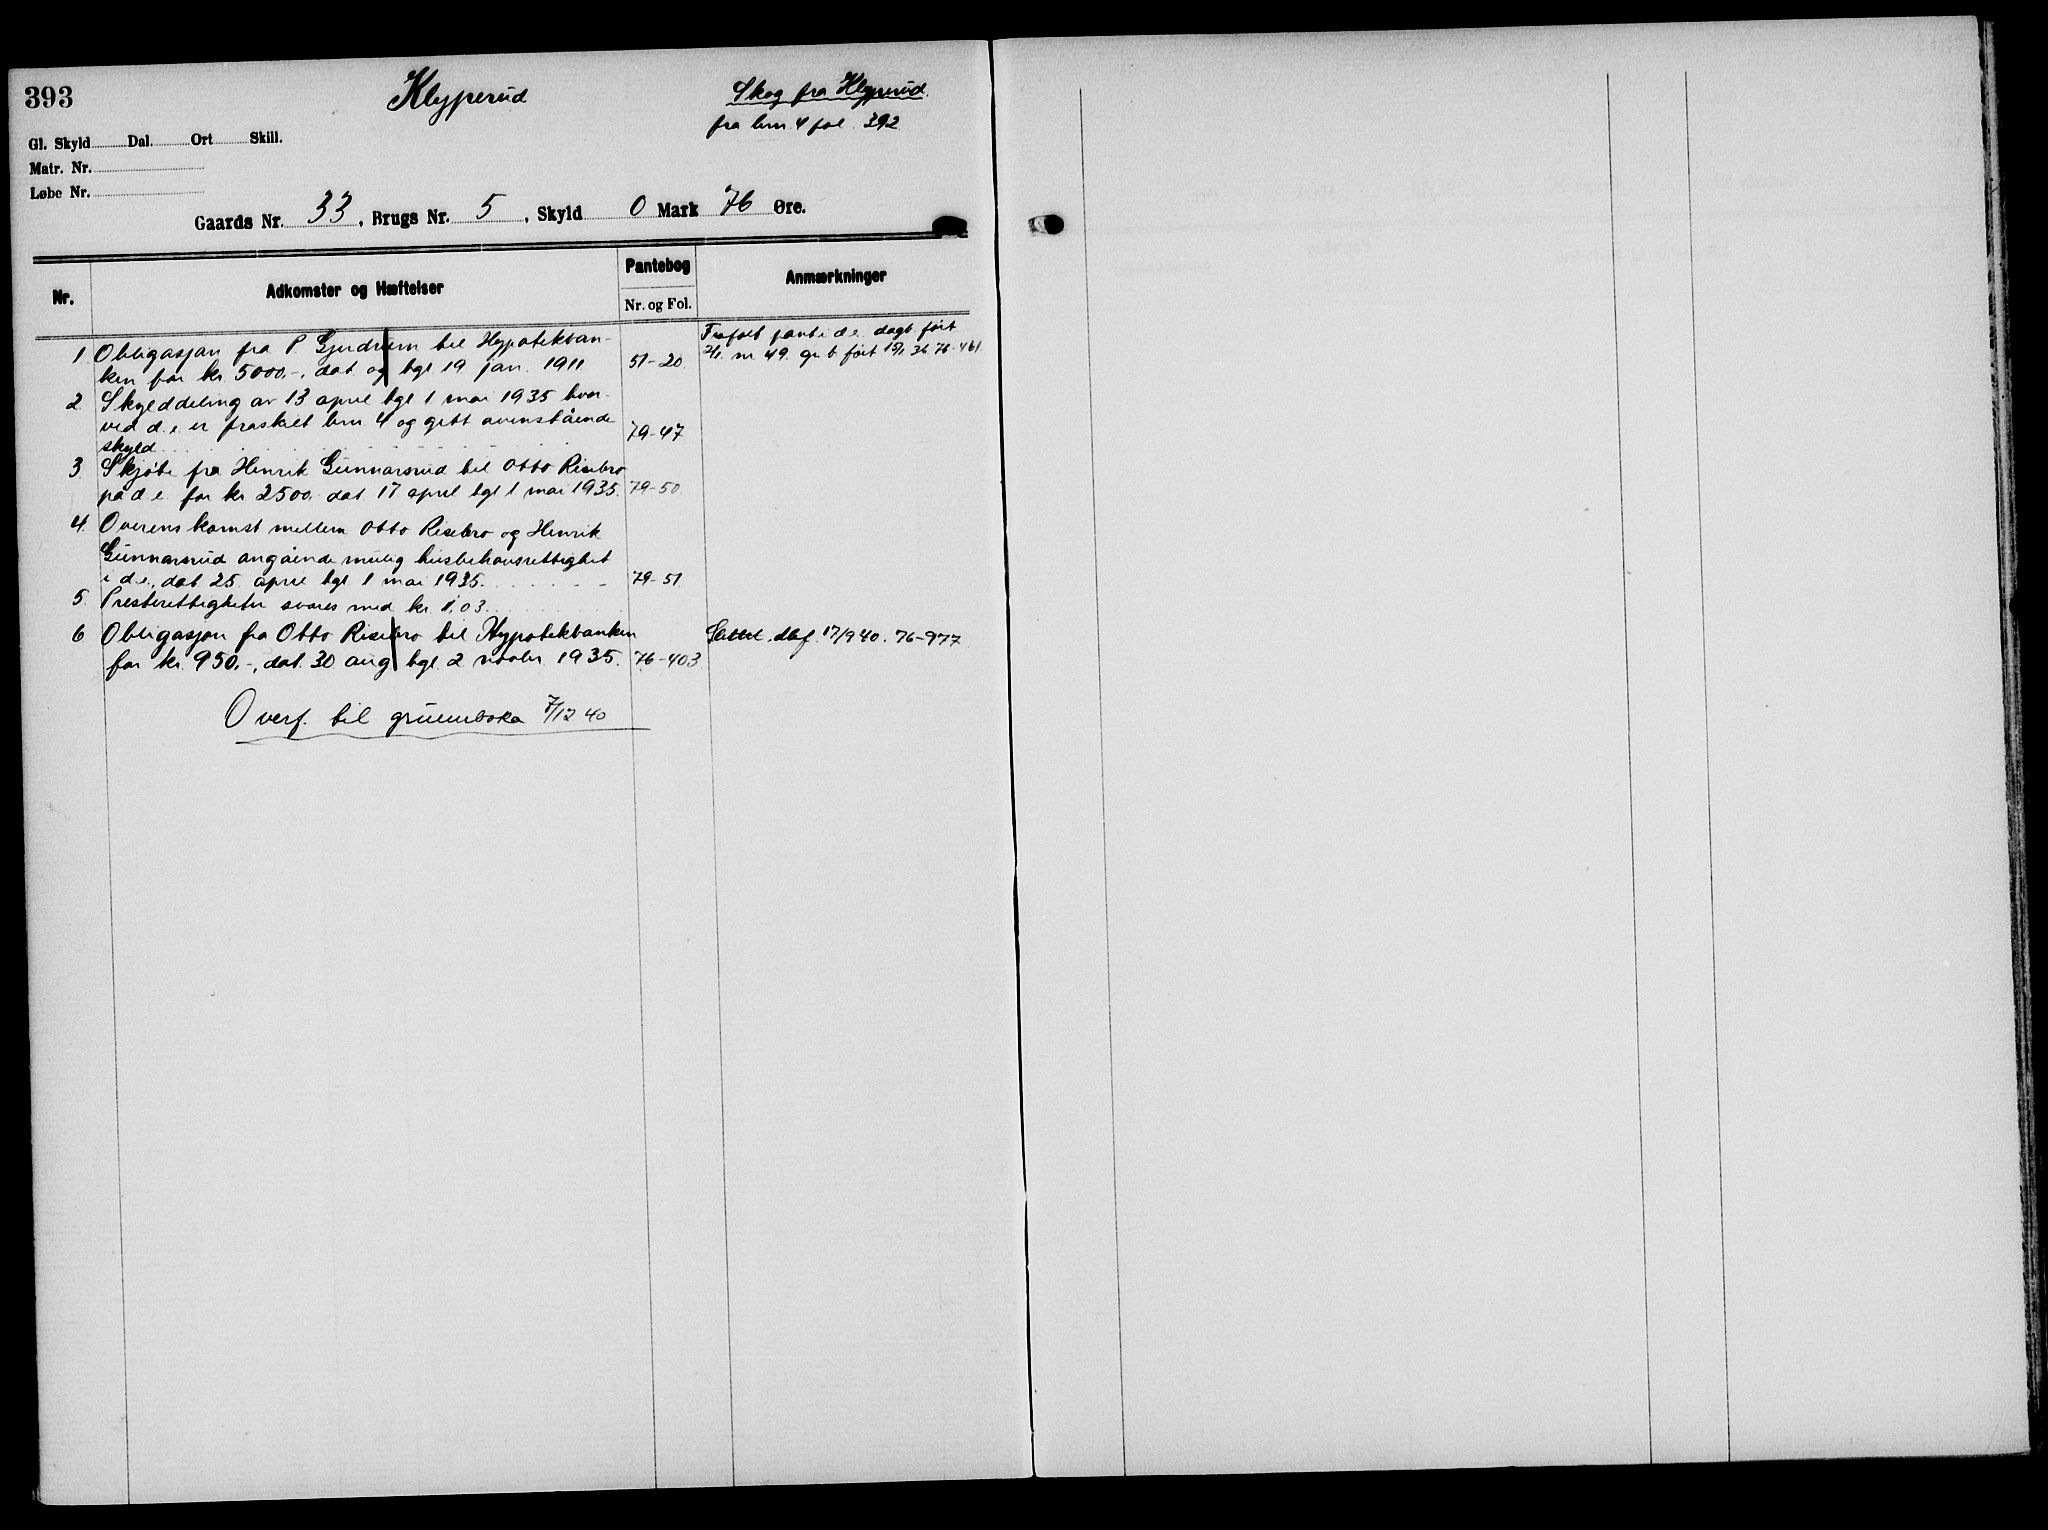 393
Klyperud
Skog fra Klyperud.
fra brn 4 fol. 392
Gl. Skyld Dal. Ort Skill.
Matr. Nr.
Løbe Nr.
Gaards Nr. 33, Brugs Nr. 5, Skyld 0 Mark 76 Øre.
Nr.
Adkomster og Hæftelser
Pantebog
Nr. og Fol.
Anmærkninger
1 Obligasjon fra P. Gjerdrum til Hypotekban-
ken for kr. 5000,-, dat og tgl 19 jan. 1911 51-20.
Frafalt pant i d.e. dagb. ført
2/1 nr 49. gr.b ført 15/1 36 76-461.
2. Skylddeling av 13 april tgl 1 mai 1935 hvor-
ved d.e. er fraskilt brn 4 og gitt ovenstående
skyld 79-47
3 Skjøte fra Henrik Gunnarsrud til Otto Risebro
på d.e. for kr 2500. dat 17 april tgl 1 mai 1935. 79-50.
4. Overenskomst mellem Otto Risebro og Henrik
Gunnarsrud angående mulig husbehovsrettighet
i d.e., dat 25. april tgl 1 mai 1935. 79-51
5. Presterettigheter svares med kr. 1,03
6 Obligasjon fra Otto Risebro til Hypotekbanken
for kr. 950,-, dat. 30 aug tgl. 2 novbr 1935. 76-403
Slettet. dbf. 17/9 40. 76-977
Overf. til grunnboka 7/12 40